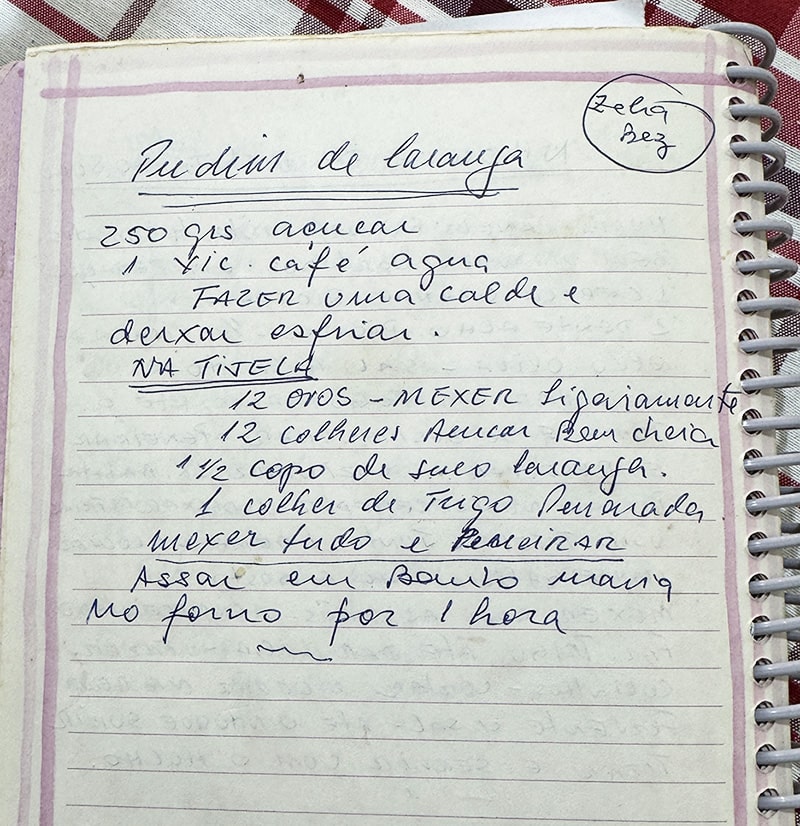 Zelia
Bez
Pudim de laranja
250 grs açucar
1 xic. café agua
FAZER uma calda e
deixar esfriar.
NA TIJELA
12 ovos - MEXER ligeiramente
12 colheres Açucar Bem cheia
1 1/2 copo de suco laranja.
1 colher de Trigo Penerada
mexer tudo e PENEIRAR
Assar em Banho maria
No forno por 1 hora